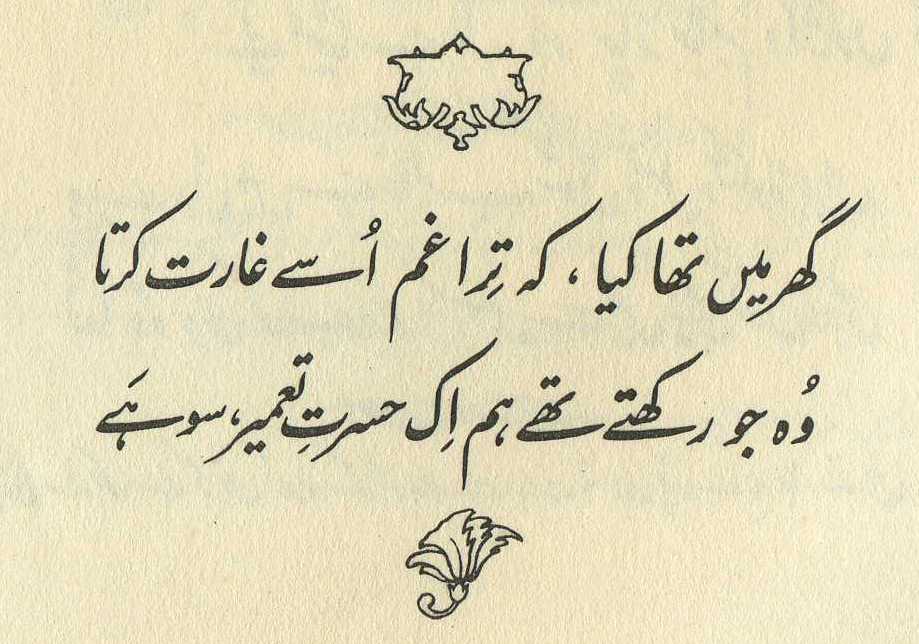 گھر میں تھا کیا، کہ تِرا غم اُسے غارت کرتا
وُہ جو رکھتے تھے ہم اِک حسرتِ تعمیر، سو ہَے